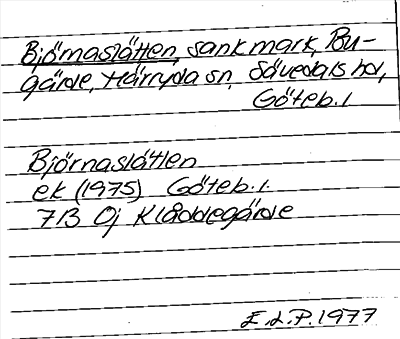 Björnaslätten, sank mark, Bu-
gärde, Härryda sn, Sävedals hd,
Göteb. l
Björnaslätten
ek (1975) Göteb. l.
7B 0j Klåddegärde
E.L.P. 1977